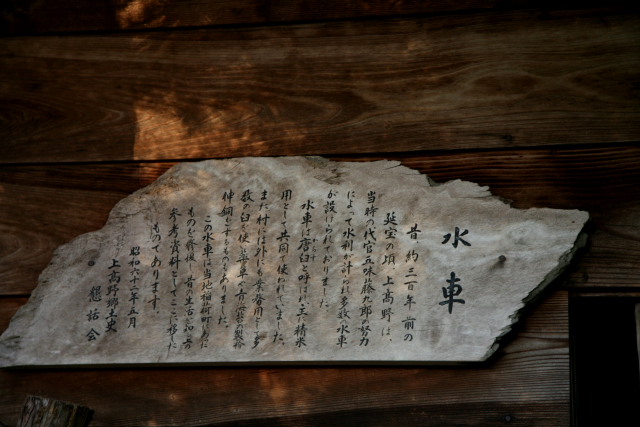 水車
昔約三百年前の
延宝の頃、上高野は、
当時の代官五味藤九郎の努力
によって水利が計られ多数の水車
が設けられておりました。
水車は唐臼と呼ばれ、主に精米
用として共同で使われていました。
また村には外にも食香用として多
数の臼を使い
伸銅
この水車は当地
ものを修復し昔の生活を知る
参考資料としてここに移した
ものであります。
昭和六十年五月
上高野郷土史
懇話会